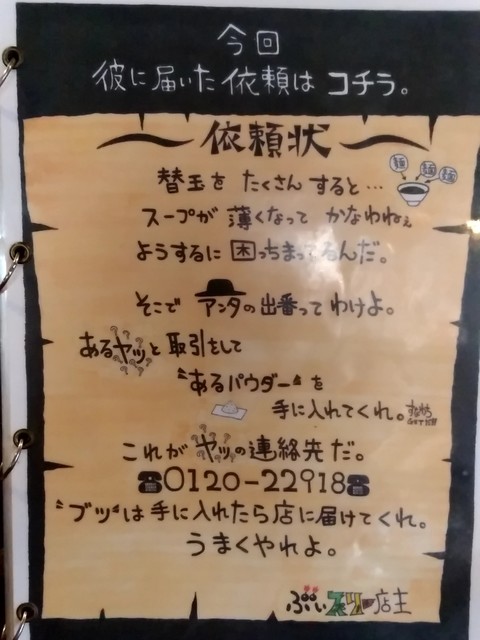 今回
彼に届いた依頼は コチラ。
依頼状
麺 麺 麺
替玉を たくさん すると…
スープが 薄くなって かなわねぇ
ようするに 困っちまってるんだ。
そこで アンタの出番って わけよ。
あるヤッと 取引をして
"あるパウダー"を
手に入れてくれ。
これが ヤツの連絡先だ。
☎0120-22918☎
"ブツ"は手に入れたら店に届けてくれ。
うまくやれよ。
店主